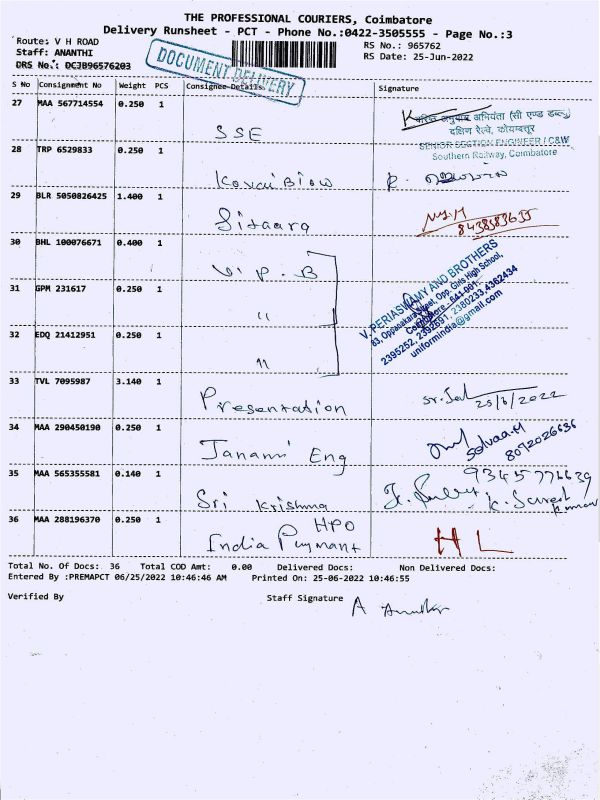 THE PROFESSIONAL COURIERS, Coimbatore
Delivery Runsheet - PCT - Phone No.:0422-3505555 - Page No.:3
Route: V H ROAD
Staff: ANANTHI
DRS No.: DCJB96576203
DOCUMENT DELIVERY
RS No.: 965762
RS Date: 25-Jun-2022
S No Consignment No Weight PCS Consignee Details Signature
27 MAA 567714554 0.250 1 SSE
अभियंता (सी एण्ड डब्ल्यू)
दक्षिण रेल्वे, कोयम्बत्तूर
SENIOR SECTION ENGINEER / C&W
Southern Railway, Coimbatore
28 TRP 6529833 0.250 1 Kovai Biow
29 BLR 5050826425 1.400 1 Sitaara
8438383635
30 BHL 100076671 0.400 1 V. P. B
31 GPM 231617 0.250 1 "
32 EDQ 21412951 0.250 1 "
V. PERIASWAMY AND BROTHERS
63, Oppanakara Street, Opp. Girls High School,
Coimbatore - 641 001
2395252, 2392691, 2380233, 4362434
uniformindia@gmail.com
33 TVL 7095987 3.140 1 Presentation
25/6/2022
34 MAA 290450190 0.250 1 Janani Eng
Selvaa.M
8072026636
35 MAA 565355581 0.140 1 Sri Krishna
9345776639
K. Suresh Kumar
36 MAA 288196370 0.250 1 HPO
India Puymant
H L
Total No. Of Docs: 36 Total COD Amt: 0.00 Delivered Docs: Non Delivered Docs:
Entered By :PREMAPCT 06/25/2022 10:46:46 AM Printed On: 25-06-2022 10:46:55
Verified By Staff Signature